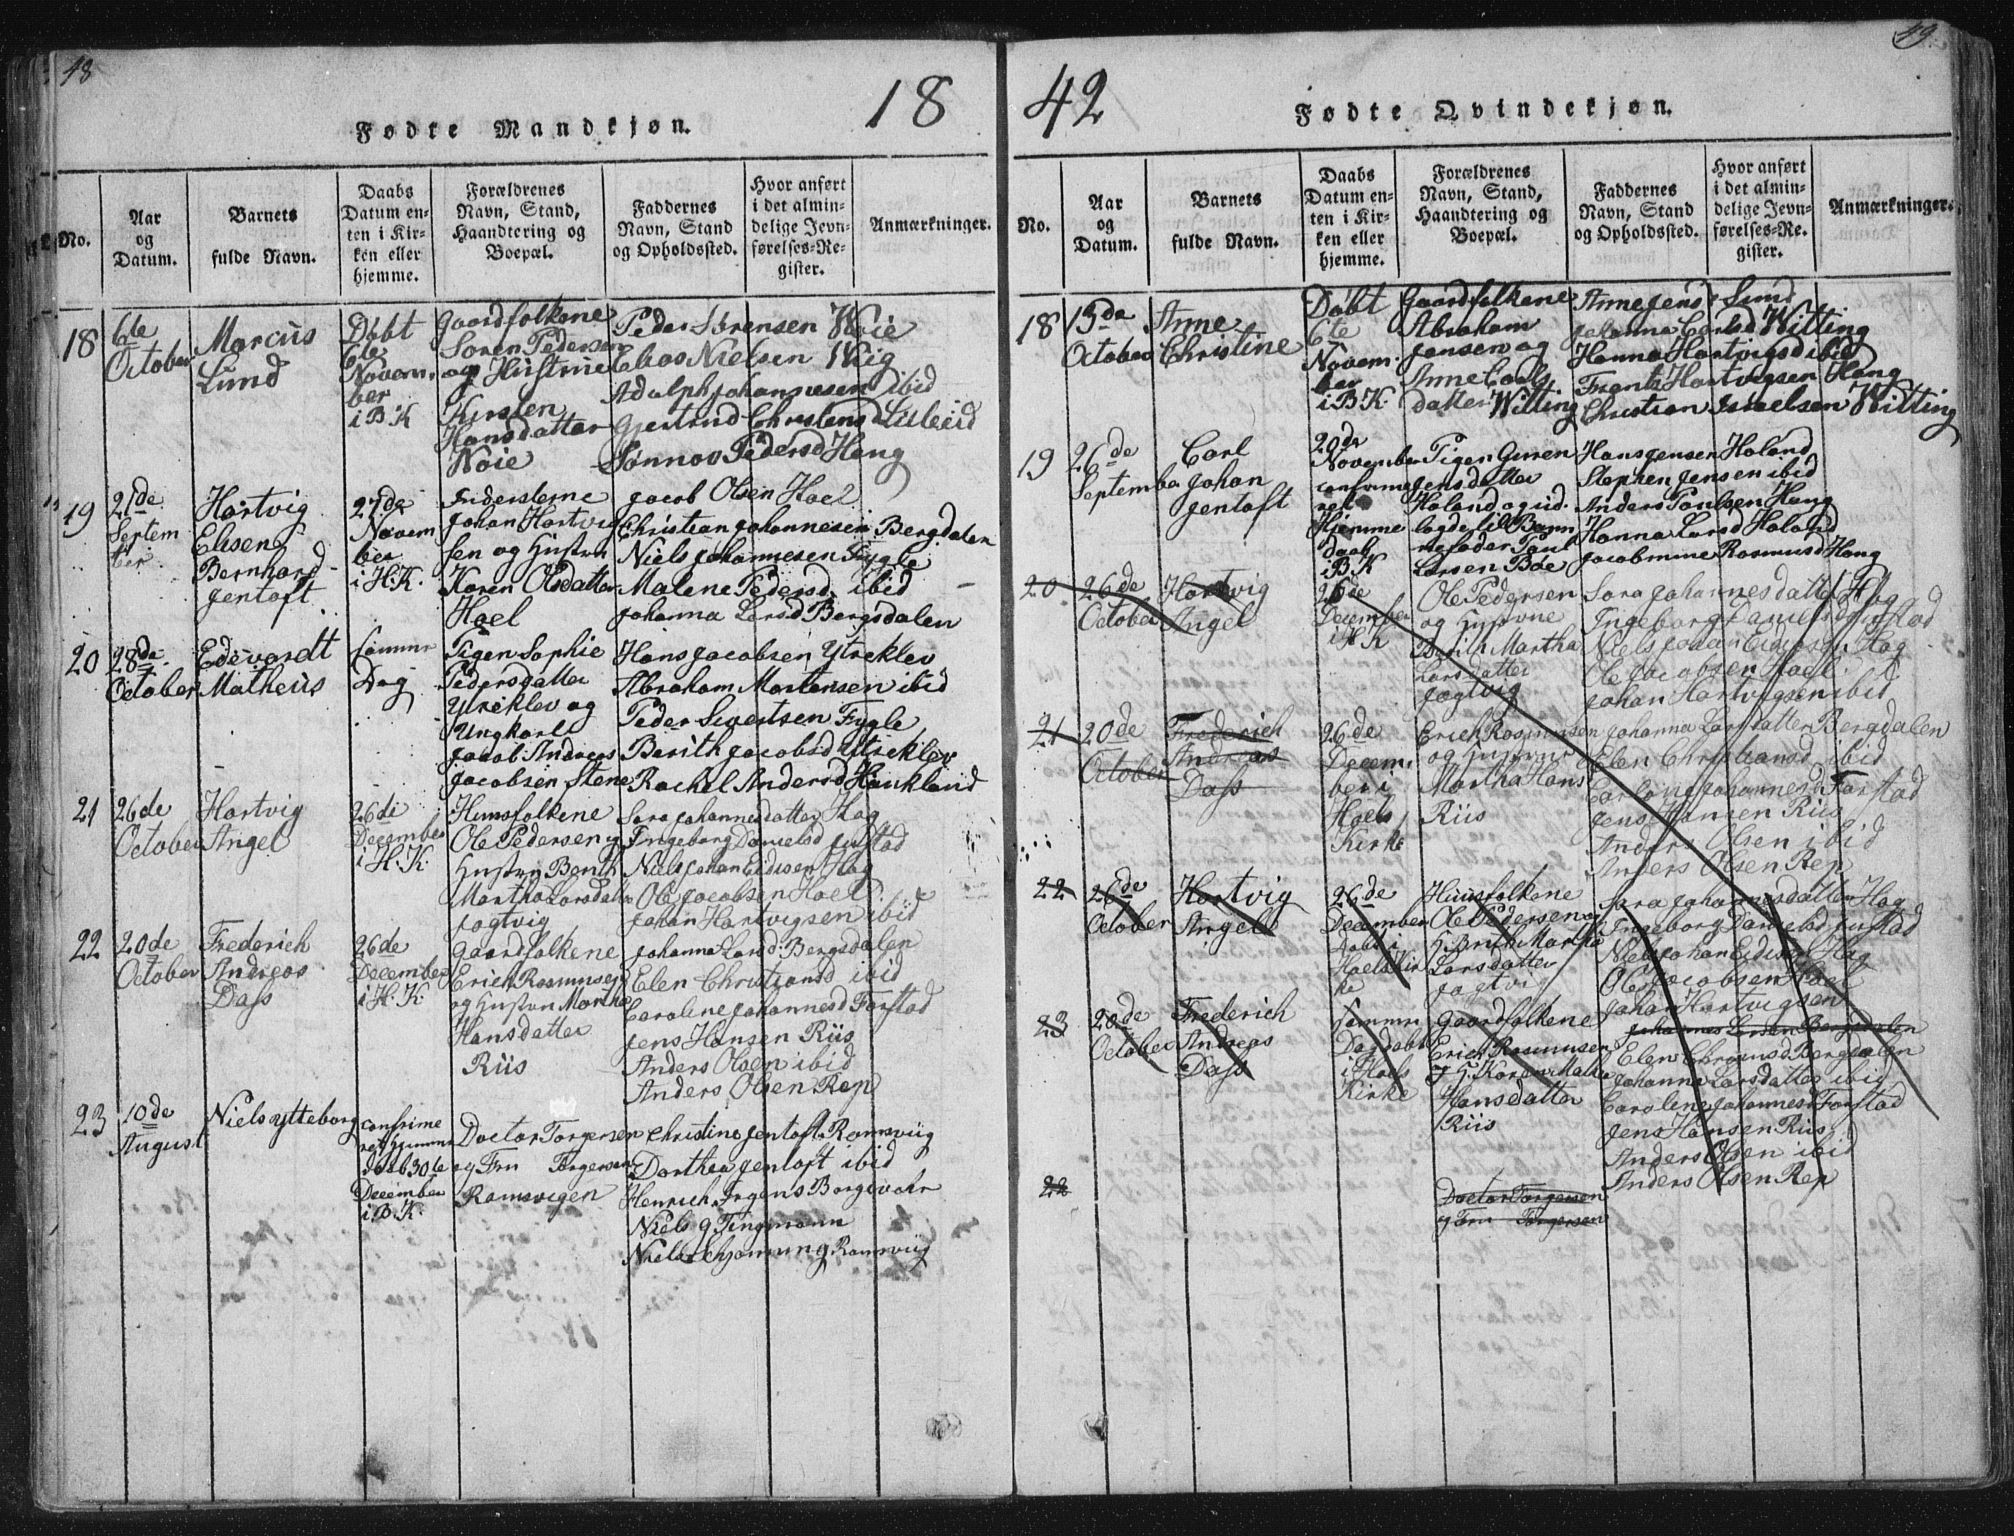 48
18
Fødte Mandkjøn.
No.
Aar
og
Datum.
Barnets
fulde Navn.
Daabs
Datum en-
ten i Kir-
ken eller
hjemme.
Forældrenes
Navn, Stand,
Haandtering og
Boepæl.
Faddernes
Navn, Stand
og Opholdssted.
Hvor anført
i det almin-
delige Jevn-
førelses-Re-
gister.
Anmærkninger.
18
6te
October
Marcus
Lund
Døbt
6te
Novem-
ber
i B K
Gaardfolkene
Søren Pedersen
og Hustrue
Kirsten
Hansdatter
Noie
Peder Sørensen Noie
Ebos Nielsen Weig
Adolph Johannesen ibid
Gjertrud Christensd Lilleeid
Sønnov Pedersd Hang
19
21de
Septem
ber
Hartvig
Elisens
Bernhard
Jentoft
27de
Novem
ber
i H.K.
Indersterne
Johan Hartvig
sen og Hustru
Karen Olsdatter
Hoel
Jacob Olsen Hoel
Christian Johannesen Bergdalen
Niels Johannesen Fygle
Malene Pedersd. ibid
Johanna Larsd Bergsdalen
20
28de
October
Edevardt
Matheus
samme
Dag
Pigen Sophie
Pedersdatter
Ytreklev og
Ungkarl
Jacob Andreas
Jacobsen Stene
Hans Jacobsen Ytreklev
Abraham Mortensen ibid
Peder Sivertsen Fygle
Berith Jacobsd Ytreklev
Rachel Andersd Haukland
21
26de
October
Hartvig
Angel
26de
December
i H.K.
Huusfolkene
Ole Pedersen og
Hustru Berith
Martha Larsdatter
Jogtvig
Sara Johannesdatter Hag
Ingeborg Danielsd Justad
Niels Johan Eidisen Hag
Ole Jacobsen Hoel
Johan Hartvigsen ibid
22
20de
October
Frederich
Andreas
Dass
26de
December
i H.K.
Gaardfolkene
Erich Rasmusen
og Hustru Martha
Hansdatter
Riis
Johanna Larsd: Bergsdalen
Elen Christiansd ibid
Caroline Johannesd Farstad
Jens Hansen Riis
Anders Olsen ibid
Anders Olsen Rep
23
10de
August
Niels Ytteborg
confirme
ret Hjemme
daab 30te
December
i B.K.
Doctor Torgersen
og Fru Torgersen
Ramsvigen
Christine Jentoft Ramsviig
Dorthea Jentoft ibid
Henrich Irgens Borgevær
Niels g Tingmann
Niels Schjønning Ramsviig
49
42
Fødte Qvindekjøn.
No.
Aar
og
Datum.
Barnets
fulde Navn.
Daabs
Datum en-
ten i Kir-
ken eller
hjemme.
Forældrenes
Navn, Stand,
Haandtering og
Boepæl.
Faddernes
Navn, Stand
og Opholdssted.
Hvor anført
i det almin-
delige Jevn-
førelses-Re-
gister.
Anmærkninger.
18
13de
October
Anne
Christine
Døbt
6te
Novem-
ber
i B K
Gaardfolkene
Abraham
Jensen og
Anne Carls
datter Witting
Anne Jensd Sund
Johanna Carlsd Witting
Hanna Hartvigsd ibid
Frents Hartvigsen Hang
Christian Israelsen Witting
19
26de
September
Carl
Johan
Jentoft
20de
November
confirme
ret
Hjemme
daab
i B K
Pigen Guren
Jensdatter
Holand og ud-
lagde til Barn
nefader Paul
Larsen Bøe
Hans Jensen Holand
Stephen Jensen ibid
Anders Paulsen Hang
Hanna Larsd Holand
Jacobmine Rasmusd Hang
20
26de
October
Hartvig
Angel
26de
December
i H K
Ole Pedersen
og Hustrue
Berith Martha
Larsdatter
Jogtvig
Sara Johannesdatter Hag
Ingeborg Danielsd Justad
Niels Johan Eidisen Hag
Ole Jacobsen Hoel
Johan Hartvigsen ibid
21
20de
October
Frederich
Andreas
Dass
26de
Decem-
ber i
Hoels
Kirke
Erich Rasmusen
og Hustrue
Martha Hans
Riis
Johanna Larsdatter Bergdalen
Elen Christiansd ibid
Caroline Johannesd Farstad
Jens Hansen Riis
Anders Olsen ibid
Anders Olsen Rep
22
26de
October
Hartvig
Angell
26de
December
døbt i
Hoels Kir
ke
Huusfolkene
Ole Pedersen og
H. Berith Martha
Larsdatter
Jogtvi
Sara Johannesdatter Hag
Ingeborg Danielsd Justad
Niels Johan Eidisen Hag
Ole Jacobsen Hoel
Johan Hartvigsen
23
20de
October
Frederich
Andreas
Dass
samme
Dag døbt
i Hoels
Kirke
Gaardfolkene
Erich Rasmusen
Hansdatter
Riis
Johannes Larsen Bergsdalen
Elen Chrsiansd Bergdalen
Johanna Larsdatter ibid
Caroline Johannesd Farstad
Jens Hansen Riis
Anders Olsen ibid
Anders Olsen Rep
22
Doctor Torgersen
og Fru Torgersen